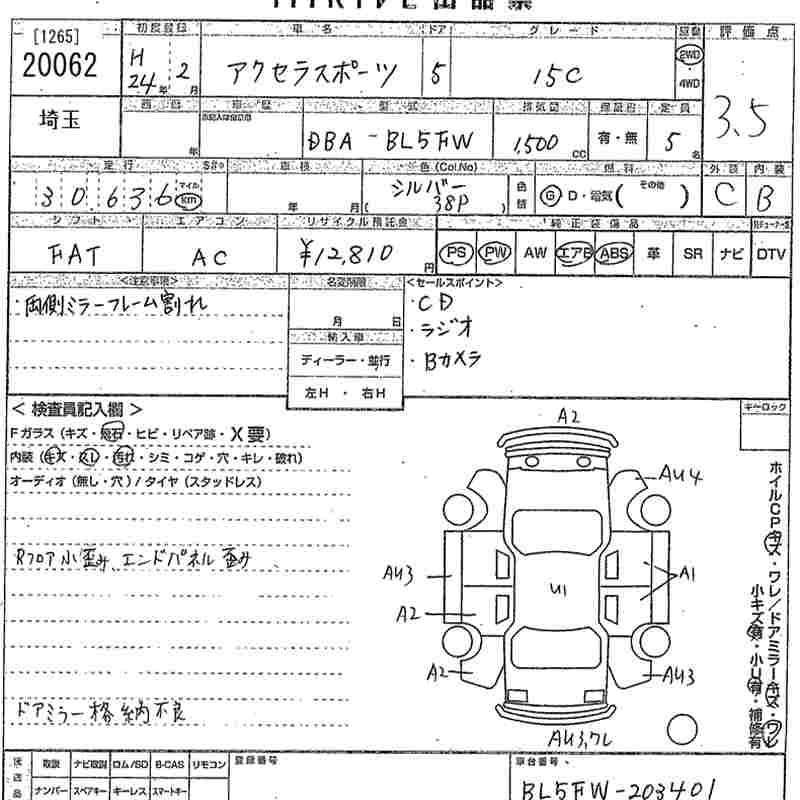 [1265]
20062
初度登録
H
24年 2月
車名
アクセラスポーツ
ドア
5
グレード
15C
駆動
2WD
4WD
評価点
3.5
埼玉
年
車歴
型式
DBA-BL5FW
排気量
1,500 cc
有・無
定員
5名
走行
30636
マイル
km
車検
年 月
色(Col.No)
シルバー
38P
色替
燃料
G D・電気( その他 )
外装
C
内装
B
シフト
FAT
エアコン
AC
リサイクル預託金
¥12,810 円
純正装備品
PS PW AW エアB ABS 革 SR ナビ DTV
<注意事項>
・両側ミラーフレーム割れ
名変期限
月 日
輸入車
ディーラー・並行
左H ・ 右H
<セールスポイント>
・CD
・ラジオ
・Bカメラ
<検査員記入欄>
Fガラス(キズ・飛石・ヒビ・リペア跡・X要)
内装(キズ・スレ・汚れ・シミ・コゲ・穴・キレ・破れ)
オーディオ(無し・穴)/タイヤ(スタッドレス)
Rフロア小歪み、エンドパネル歪み
ドアミラー格納不良
キーロック
A2
AU4
AU3
A1
U1
A2
A2
AU3
AU3,ワレ
ホイルCPキズ・ワレ/ドアミラーキズ・ワレ
小キズ有・小U有・補修有
後送品
取説 ナビ取説 ロム/SD B-CAS リモコン
ナンバー スペアキー キーレス スマートキー
登録番号
車台番号
BL5FW-203401